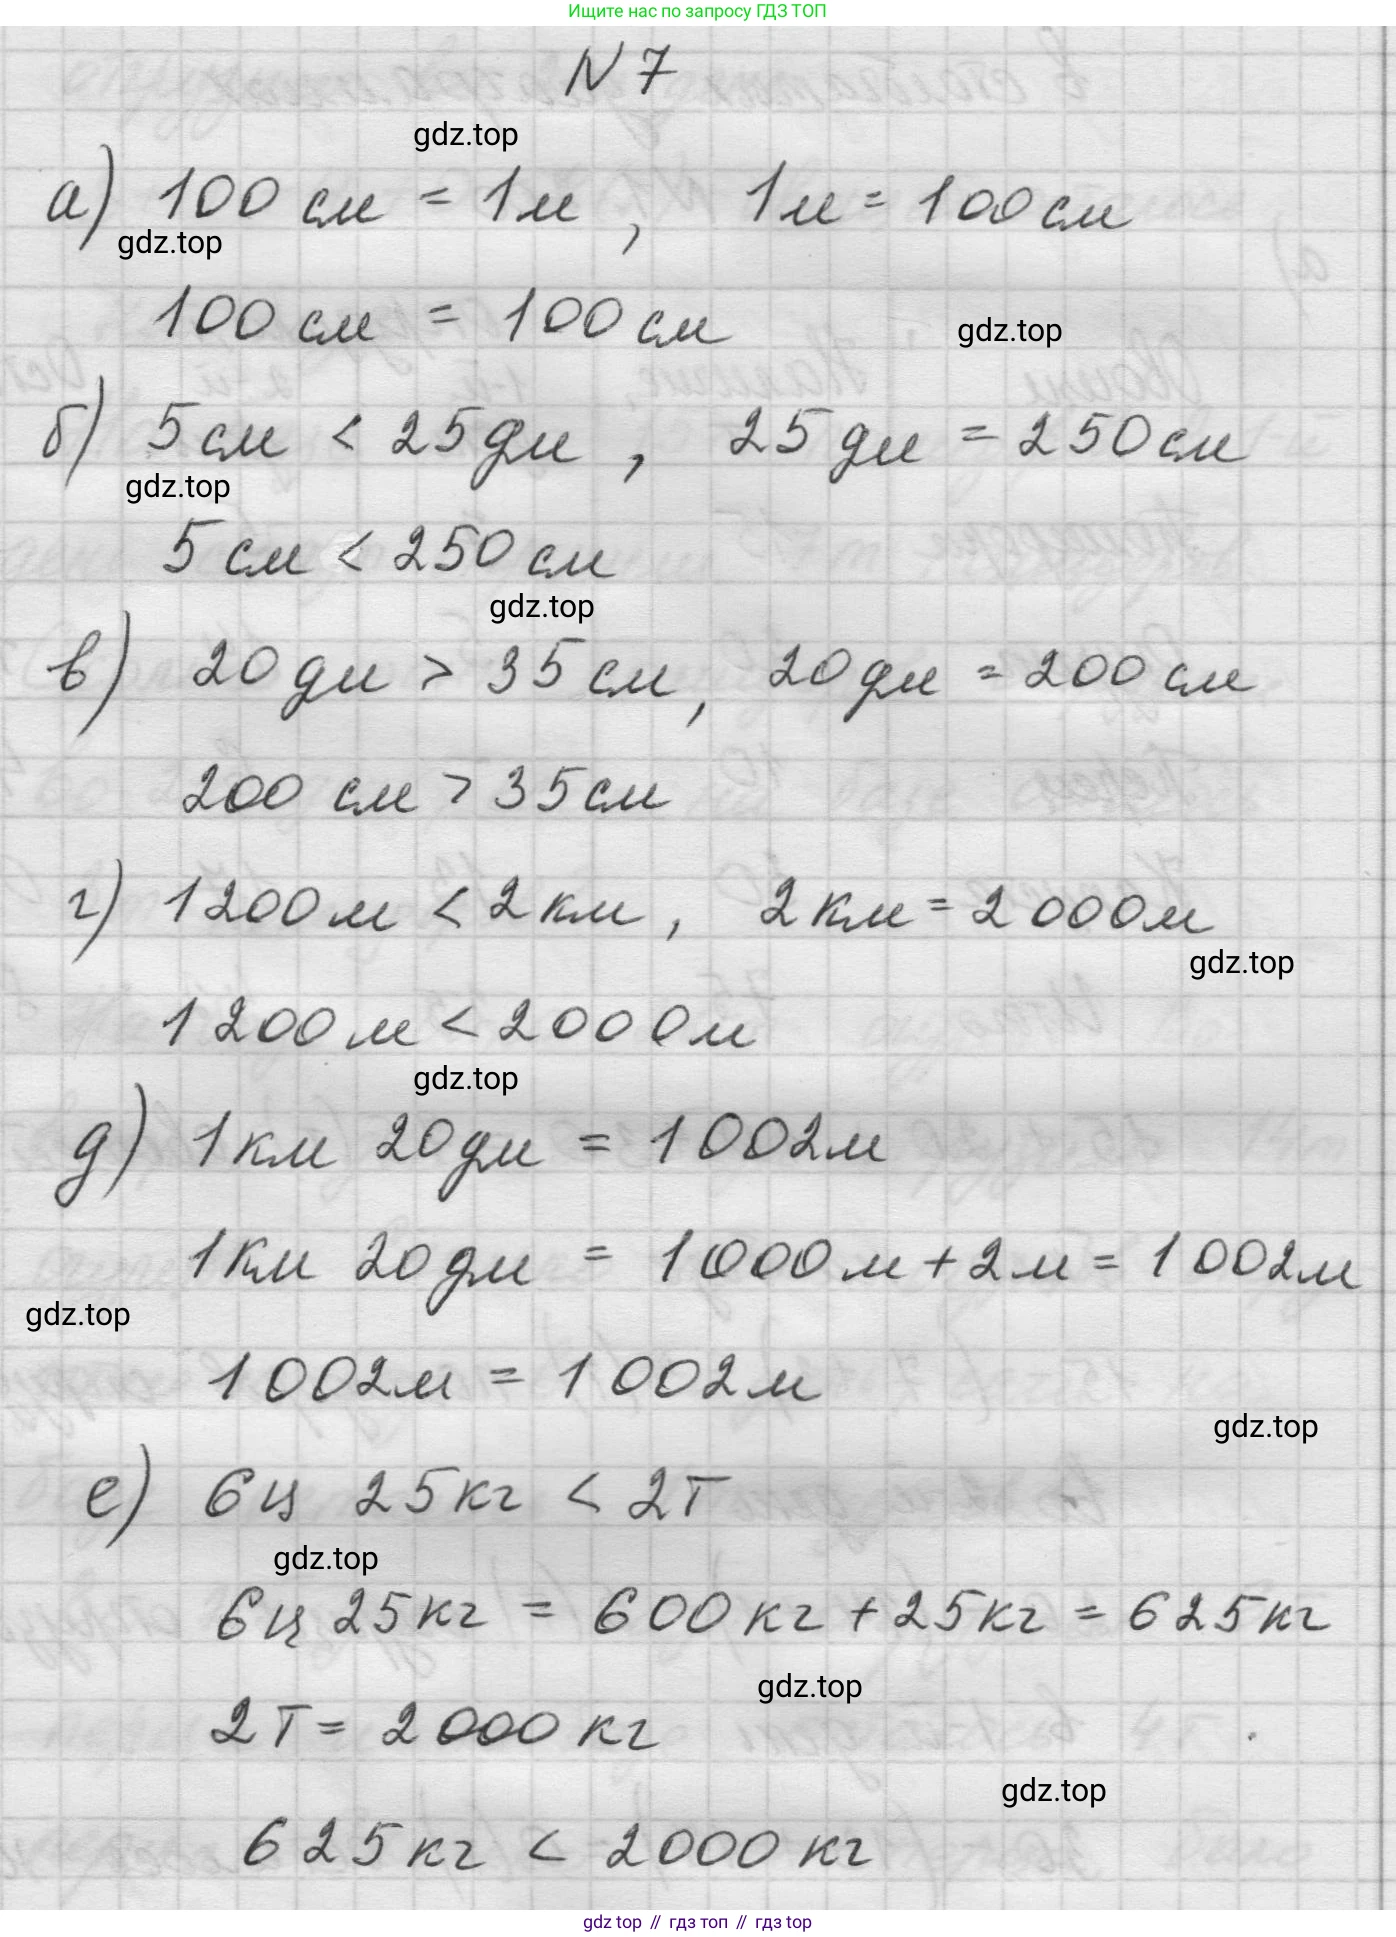 Ищите нас по запросу ГДЗ ТОП
N 7
gdz.top
а) 100 см = 1 м , 1 м = 100 см
gdz.top
100 см = 100 см
gdz.top
б) 5 см < 25 дм , 25 дм = 250 см
gdz.top
5 см < 250 см
gdz.top
в) 20 дм > 35 см, 20 дм = 200 см
200 см > 35 см
г) 1200 м < 2 км , 2 км = 2000 м
gdz.top
1200 м < 2000 м
gdz.top
д) 1 км 20 дм = 1002 м
1 км 20 дм = 1000 м + 2 м = 1002 м
gdz.top
1002 м = 1002 м
gdz.top
е) 6 ц 25 кг < 2 т
gdz.top
6 ц 25 кг = 600 кг + 25 кг = 625 кг
gdz.top
2 т = 2000 кг
gdz.top
625 кг < 2000 кг
gdz top // гдз топ // гдз top